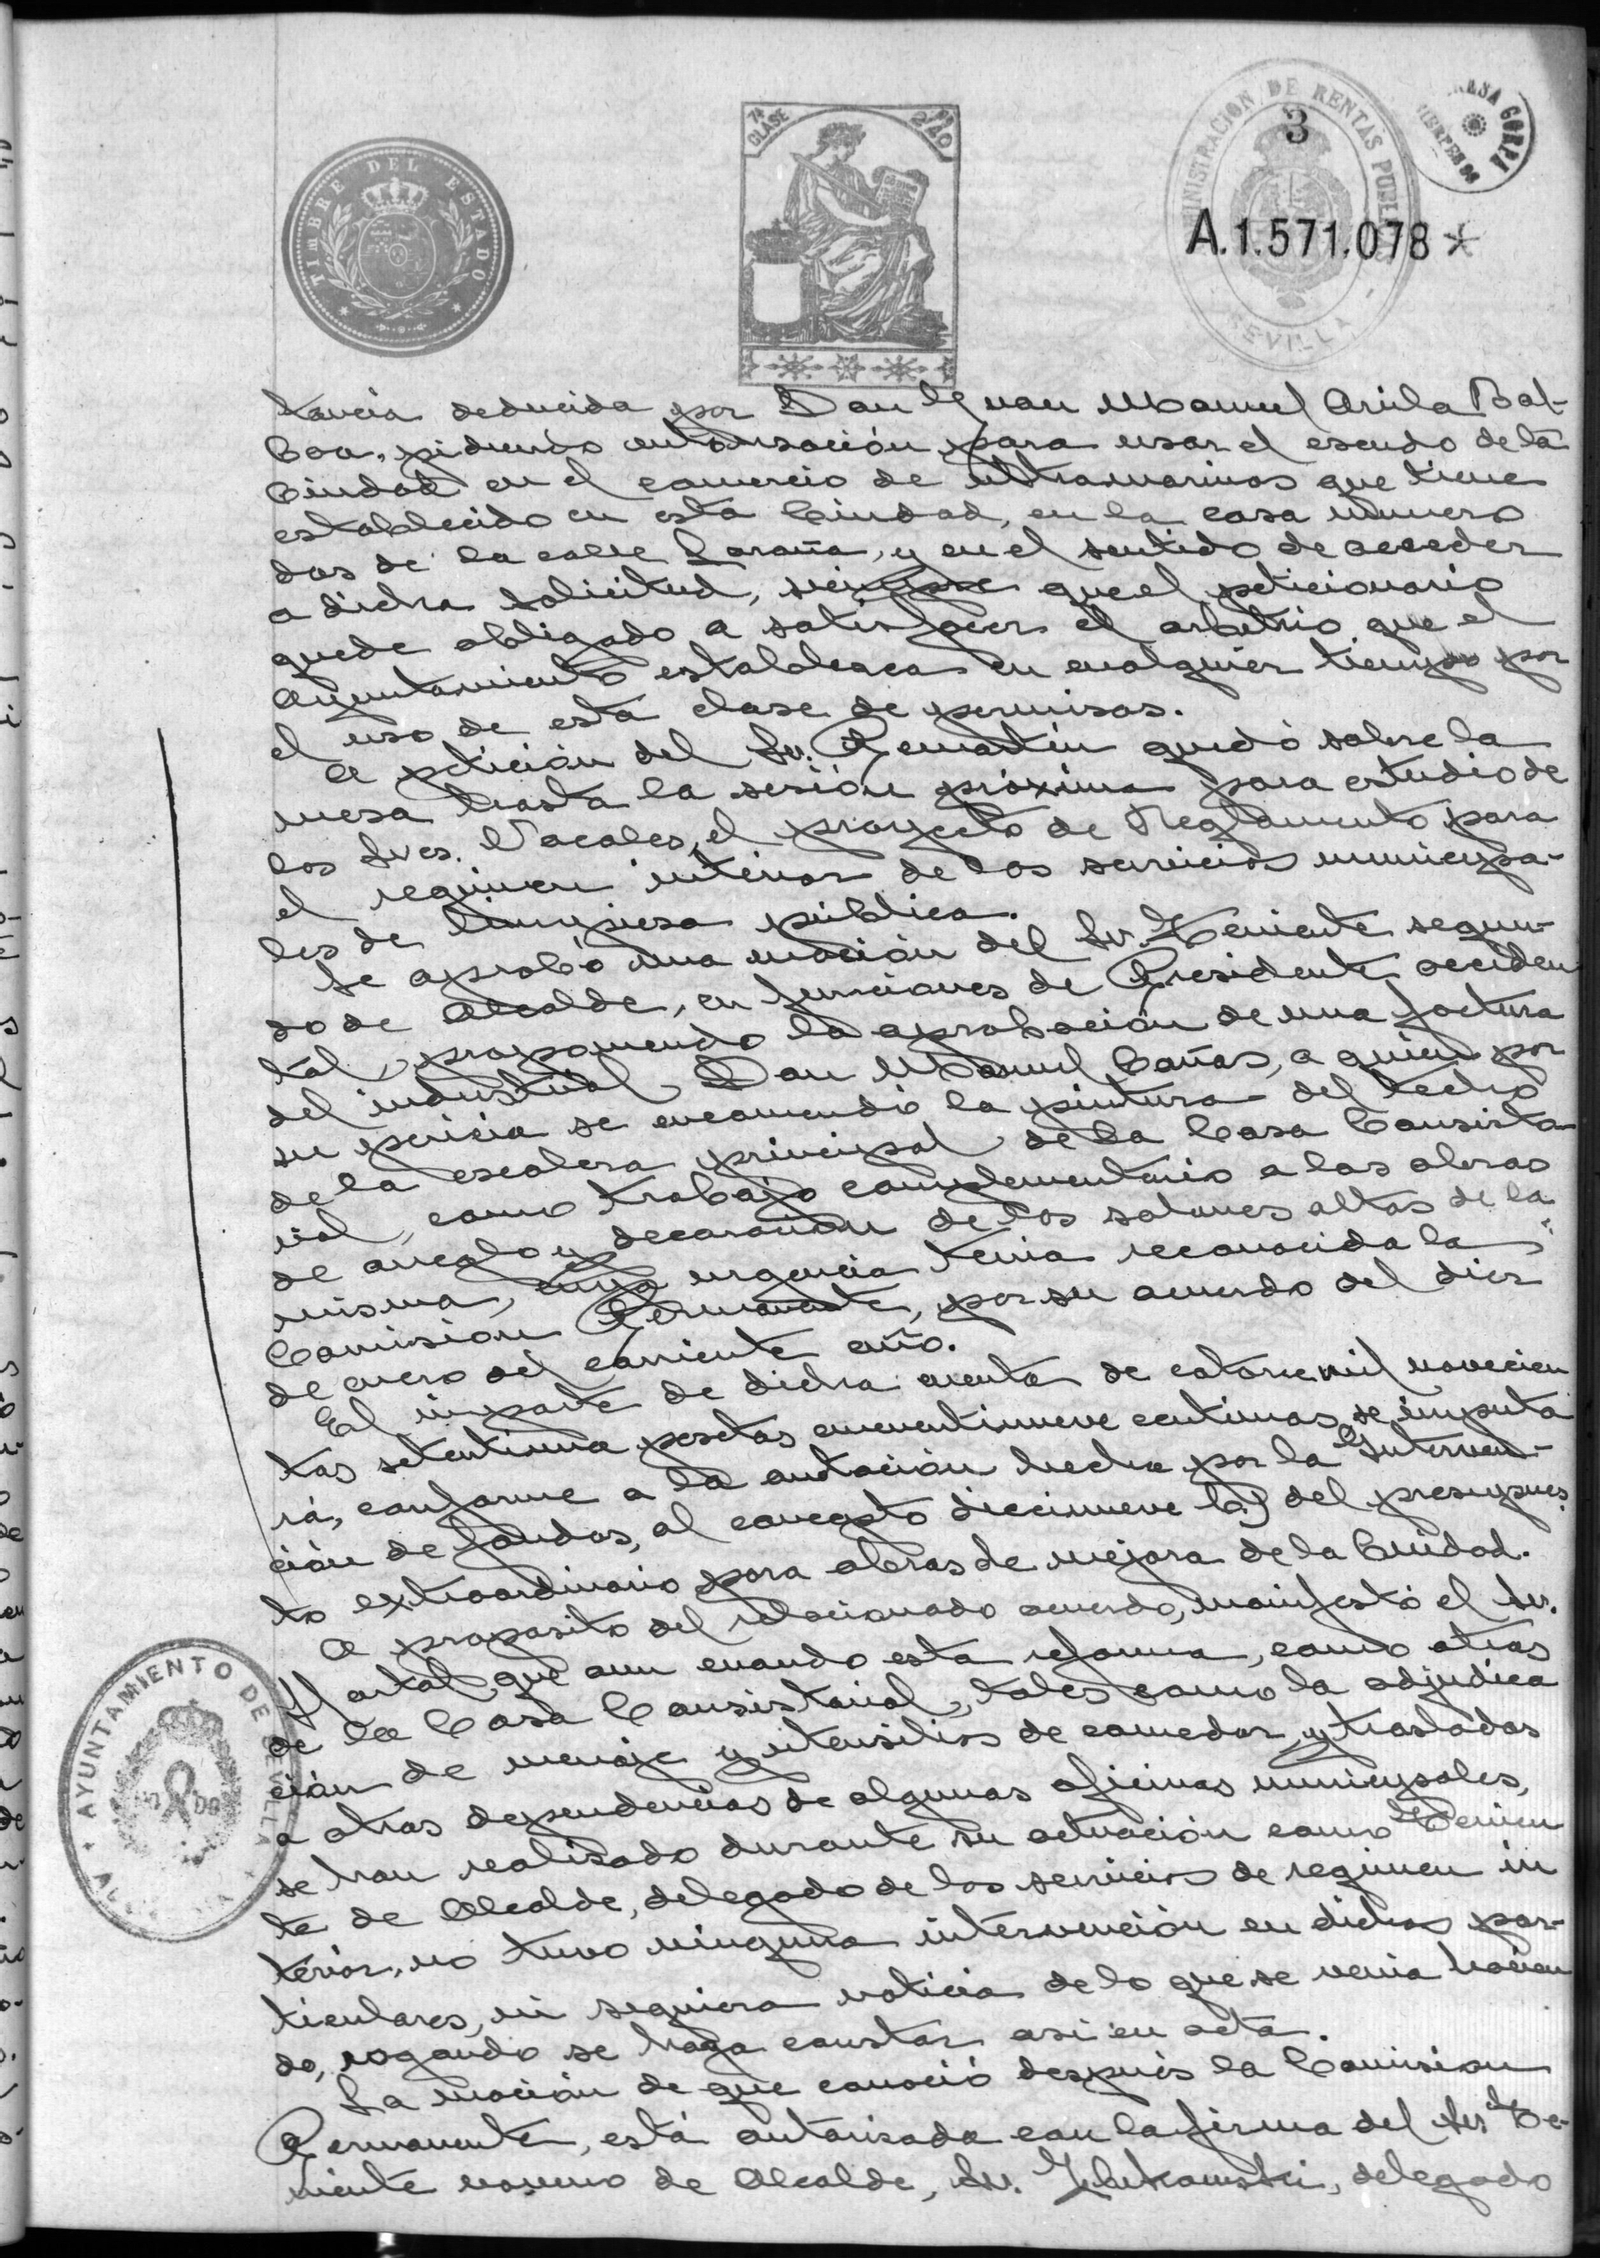 TIMBRE DEL ESTADO
7ª CLASE
ADMINISTRACION DE RENTAS PUBLICAS
SEVILLA
3
A.1.571.078*
tancia deducida por Don Juan Manuel Avila Bal-
boa, pidiendo autorisación para usar el escudo de la
Ciudad en el comercio de ultramarinos que tiene
establecido en esta Ciudad, en la casa número
dos de la calle Laraña, y en el sentido de acceder
a dicha solicitud, siempre que el peticionario
quede obligado a satisfacer el arbitrio que el
Ayuntamiento establezca en cualquier tiempo por
el uso de esta clase de permisos.
A petición del Sr. Remartín quedó sobre la
mesa hasta la sesión próxima para estudio de
los Sres. Vocales, el proyecto de Reglamento para
el regimen interior de los servicios municipa-
les de limpieza pública.
Se aprobó una moción del Sr. Teniente segun-
do de Alcalde, en funciones de Presidente acciden
tal, proponiendo la aprobación de una factura
del industrial Don Manuel Cañas, a quien por
su pericia se encomendó la pintura del techo
de la escalera principal de la Casa Consisto-
rial, como trabajo complementario a las obras
de arreglo y decoración de los salones altos de la
misma, cuya urgencia tenia reconocida la
Comisión Permanente, por su acuerdo del dies
de enero del corriente año.
El importe de dicha cuenta de catorce mil novecien
tas setentiuna pesetas cuarentinueve centimos se imputa
rá, conforme a la anotación hecha por la Interven-
ción de fondos, al concepto diecinueve b) del presupues
to extraordinario para obras de mejora de la Ciudad.
A proposito del relacionado acuerdo, manifestó el Sr.
Hortal, que aun cuando esta reforma, como otras
de la Casa Consistorial, tales como la adjudica
ción de menaje y utensilios de comedor, y traslados
a otras dependencias de algunas oficinas municipales,
se han realisado durante su actuación como Tenien
te de Alcalde, delegado de los servicios de regimen in
terior, no tuvo ninguna intervención en dichos par-
ticulares, ni siquiera noticia de lo que se venia hacien
do, rogando se haga constar asi en acta.
La moción de que conoció después la Comisión
Permanente, está autorisada con la firma del Sr. Te-
niente noveno de Alcalde, Sr. delegado
AYUNTAMIENTO DE SEVILLA
NO DO